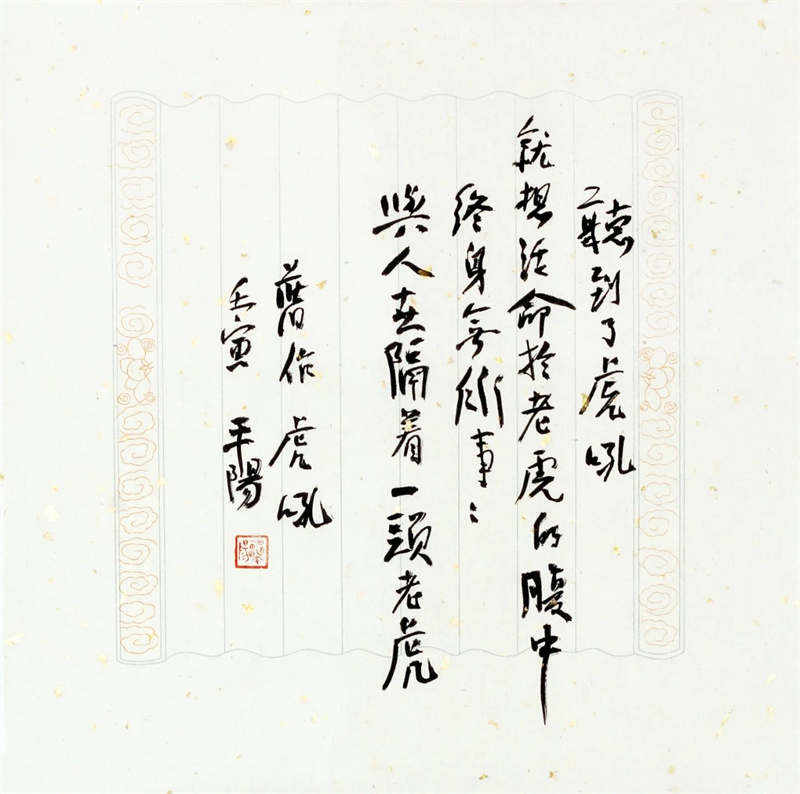 聽到了虎吼
就想活命於老虎的腹中
終身無所事〻
與人世隔着一頭老虎
舊作 虎吼
壬寅 平陽